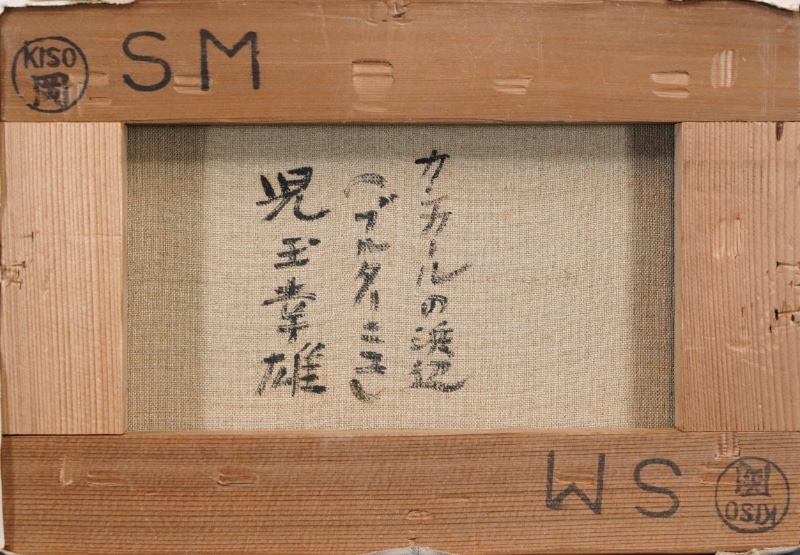 KISO
SM
カンカールの浜辺
(ブルターニュ)
児玉幸雄
SM
KISO